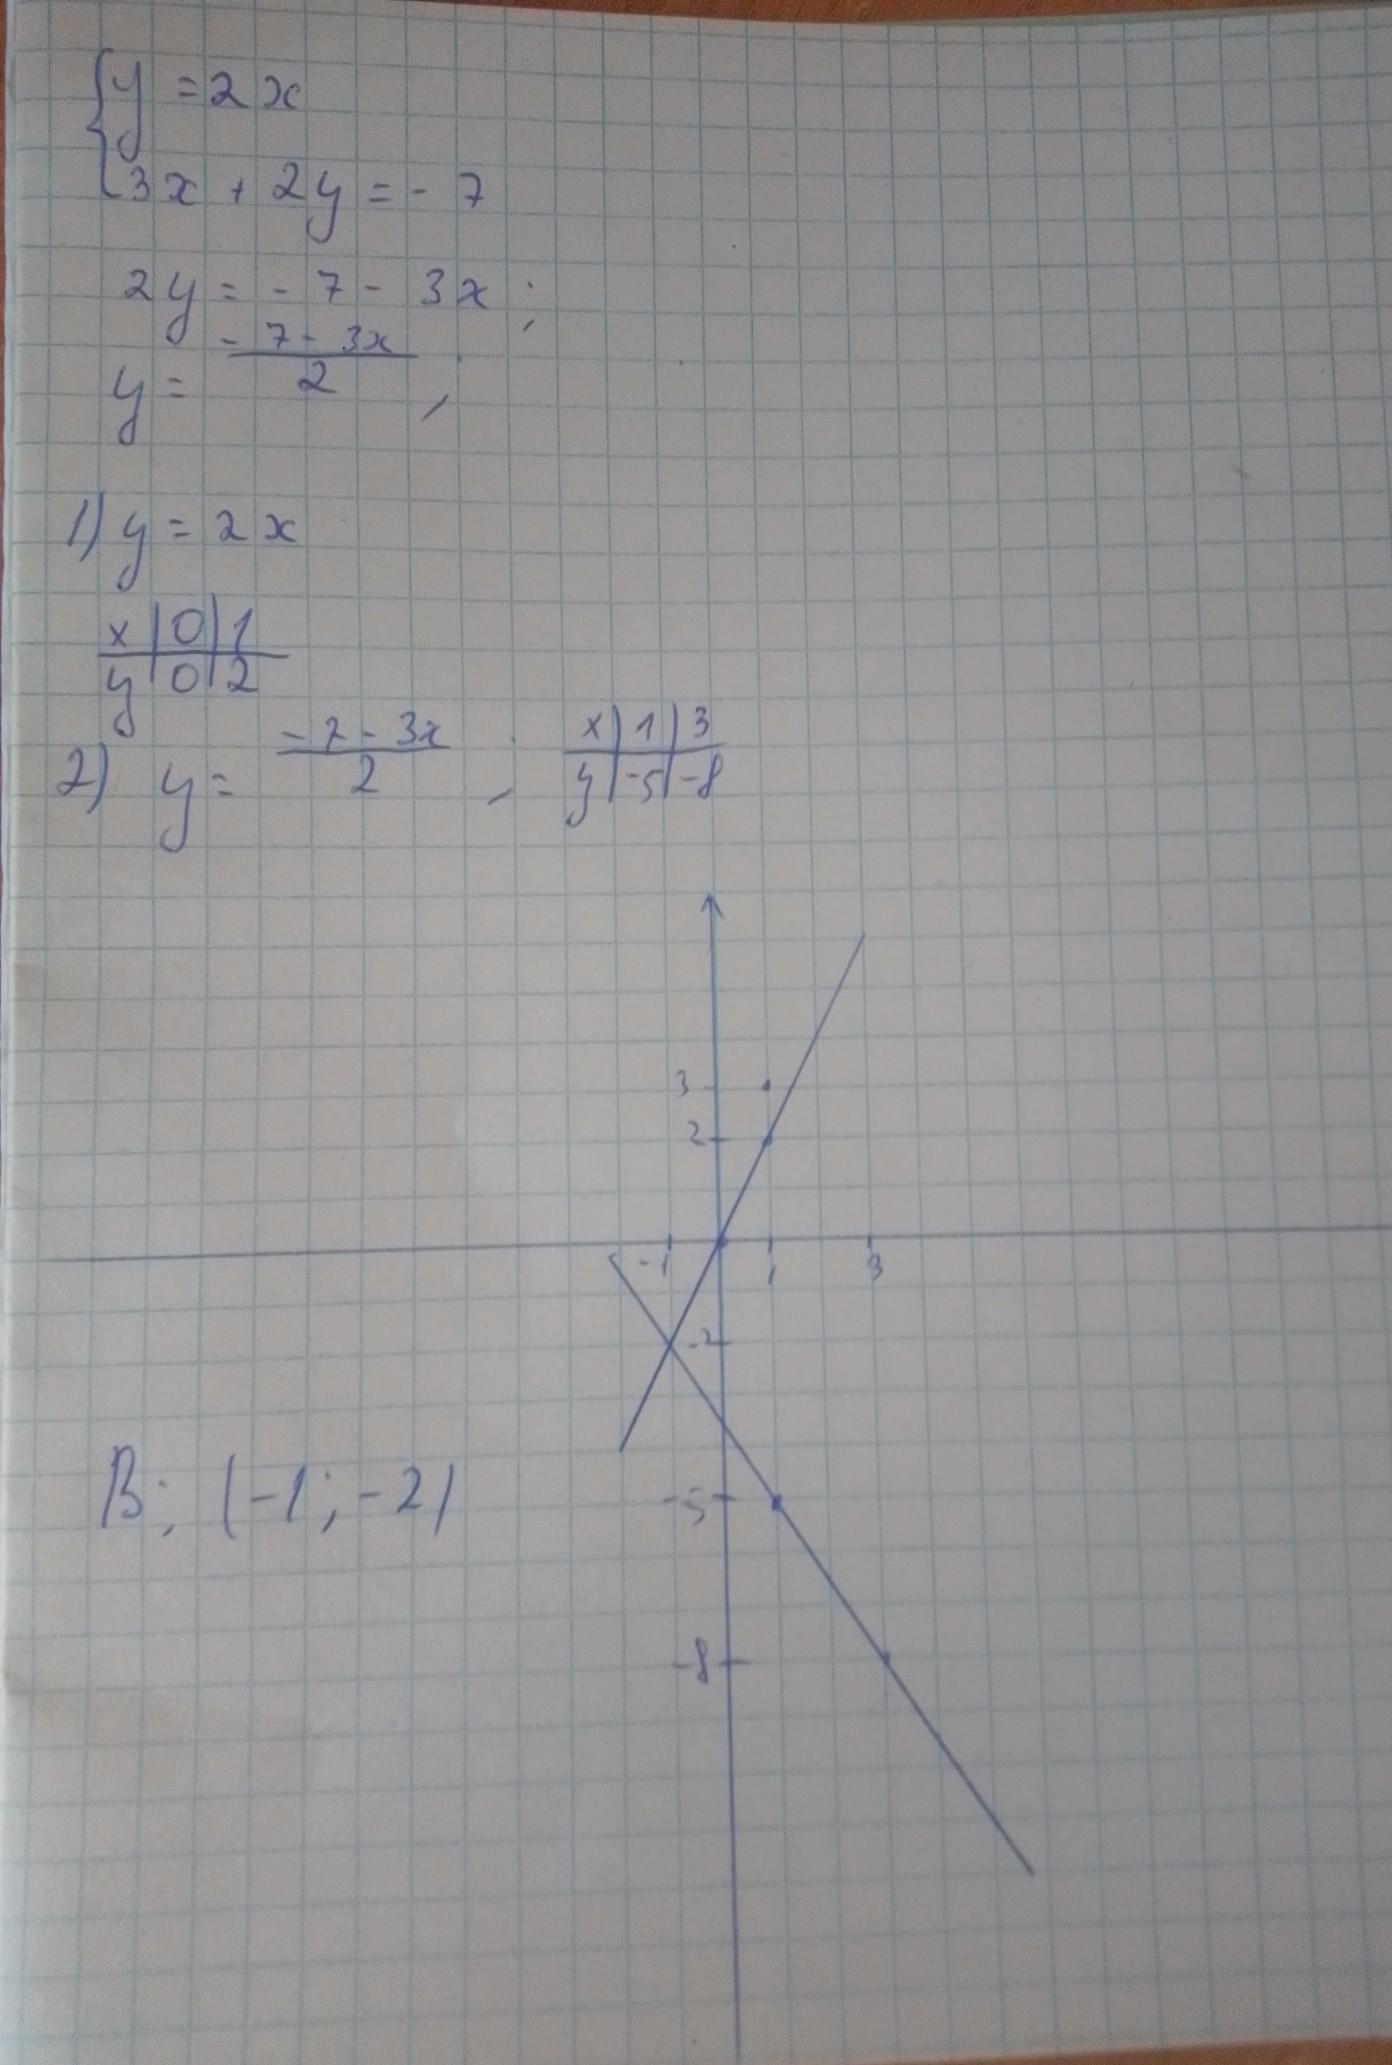 {y = 2x
3x + 2y = - 7
2y = - 7 - 3x ;
y = (- 7 - 3x)/2 ;
1) y = 2x
x | 0 | 1
y | 0 | 2
2) y = (- 7 - 3x)/2 ; x | 1 | 3
y | -5 | -8
3
2
-1 1 3
-2
B: (-1; -2)
-5
-8